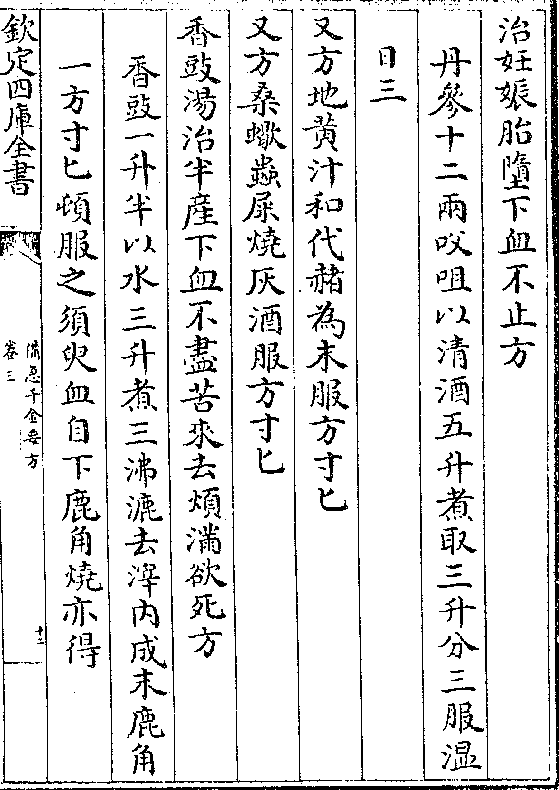 治妊娠胎墮下血不止方
丹參十二兩㕮咀以清酒五升煮取三升分三服溫
日三
又方地黃汁和代赭為末服方寸匕
又方桑蠍蟲屎燒灰酒服方寸匕
香豉湯治半産下血不盡苦來去煩滿欲死方
香豉一升半以水三升煮三沸漉去滓内成末鹿角
一方寸匕頓服之須臾血自下鹿角燒亦得
欽定四庫全書
備急千金要方
卷三
十二